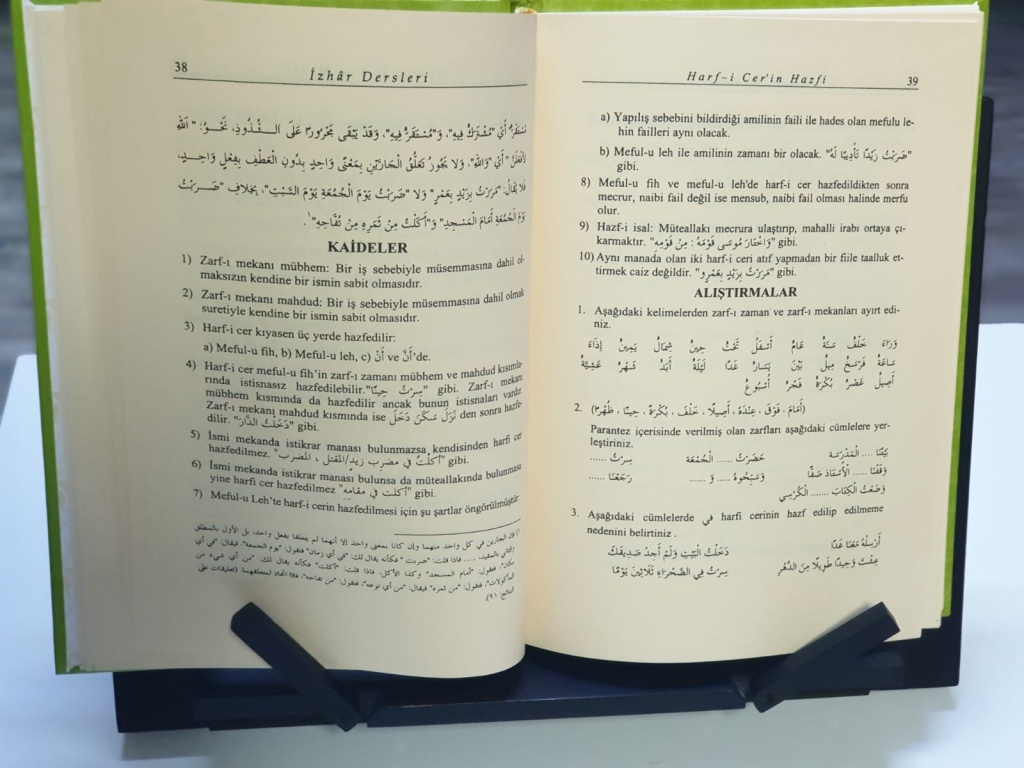 38
İzhâr Dersleri
مُسْتَقَرٌّ أَيْ "مُشْتَرَكٌ فِيهِ"، وَ"مُسْتَقَرٌّ فِيهِ"، وَقَدْ يَبْقَى مَجْرُورًا عَلَى الشُّذُوذِ، نَحْوُ: "اَللهِ
لأَفْعَلَنَّ" أَيْ "وَاللهِ"، وَلَا يَجُوزُ تَعَلُّقُ الْجَارَّيْنِ بِمَعْنًى وَاحِدٍ بِدُونِ الْعَطْفِ بِفِعْلٍ وَاحِدٍ،
فَلَا يُقَالُ: "مَرَرْتُ بِزَيْدٍ بِعَمْرٍو" وَلَا "ضَرَبْتُ يَوْمَ الْجُمُعَةِ يَوْمَ السَّبْتِ"، بِخِلَافِ "ضَرَبْتُ
يَوْمَ الْجُمُعَةِ أَمَامَ الْمَسْجِدِ" وَ"أَكَلْتُ مِنْ ثَمَرِهِ مِنْ تُفَّاحِهِ"¹.
KAİDELER
1) Zarf-ı mekanı mübhem: Bir iş sebebiyle müsemmasına dahil ol-
maksızın kendine bir ismin sabit olmasıdır.
2) Zarf-ı mekanı mahdud: Bir iş sebebiyle müsemmasına dahil olmak
suretiyle kendine bir ismin sabit olması.
3) Harf-i cer kıyasen üç yerde hazfedilir:
a) Meful-u fih, b) Meful-u leh, c) أَنْ ve أَنَّ'de.
4) Harf-i cer meful-u fih'in zarf-ı zamanı mübhem ve mahdud kısımla-
rında istisnasız hazfedilebilir."سِرْتُ حِينًا" gibi. Zarf-ı mekanı
mübhem kısmında da hazfedilir ancak bunun istisnaları vardır.
Zarf-ı mekanı mahdud kısmında ise نَزَلَ سَكَنَ دَخَلَ den sonra hazfe-
dilir. "دَخَلْتُ الدَّارَ" gibi.
5) İsmi mekanda istikrar manası bulunmazsa kendisinden harfi cer
hazfedilmez. "أَكَلْتُ فِي مَضْرِبِ زيدٍ/المَقْتَلِ ، المضرب" gibi.
6) İsmi mekanda istikrar manası bulunsa da müteallakında bulunmasa
yine harfi cer hazfedilmez "أكلت في مقامه" gibi.
7) Meful-u Leh'te harf-i cerin hazfedilmesi için şu şartlar öngörülmüştür:
39
Harf-i Cer'in Hazfi
a) Yapılış sebebini bildirdiği amilinin faili ile hades olan mefulu le-
hin failleri aynı olacak.
b) Meful-u leh ile amilinin zamanı bir olacak. "ضَرَبْتُ زَيْدًا تَأْدِيبًا لَهُ"
gibi.
8) Meful-u fih ve meful-u leh'de harf-i cer hazfedildikten sonra
mecrur, naibi fail değil ise mensub, naibi fail olması halinde merfu
olur.
9) Hazf-i isal: Müteallakı mecrura ulaştırıp, mahalli irabı ortaya çı-
karmaktır. "وَاخْتَارَ مُوسَى قَوْمَهُ : مِنْ قَوْمِهِ" gibi.
10) Aynı manada olan iki harf-i ceri atıf yapmadan bir fiile taalluk et-
tirmek caiz değildir. "مَرَرْتُ بِزَيْدٍ بِعَمْرٍو" gibi.
ALIŞTIRMALAR
1. Aşağıdaki kelimelerden zarf-ı zaman ve zarf-ı mekanları ayırt edi-
niz.
وَرَاءَ خَلْفُ سَنَةٌ عَامٌ أَسْفَلُ تَحْتَ حِينٌ شِمَالُ يَمِينُ إِذَاءَ
سَاعَةٌ فَرْسَخٌ مِيلٌ بَيْنَ يَسَارُ غَدًا لَيْلَةٌ أَبَدٌ شَهْرٌ عَشِيَّةٌ
أَصِيلٌ عَصْرٌ بُكْرَةٌ فَجْرٌ أُسْبُوعٌ
2. (أَمَامَ ، فَوْقَ ، عِنْدَهُ ، أَصِيلًا ، خَلْفَ ، بُكْرَةً ، حِينًا ، ظُهْرًا)
Parantez içerisinde verilmiş olan zarfları aşağıdaki cümlelere yer-
leştiriniz.
بَيْتُنَا .... الْمَدْرَسَةِ حَضَرْتُ ...... الْجُمُعَةَ سِرْتُ ......
وَقَفْنَا ...... الْأُسْتَاذِ صَفًّا وَسَبِّحُوهُ ...... وَ ...... رَجَعْنَا ......
وَضَعْتُ الْكِتَابَ ...... الْكُرْسِيِ
3. Aşağıdaki cümlelerde في harfi cerinin hazf edilip edilmeme
nedenini belirtiniz .
أَرْسِلْهُ مَعَنَا غَدًا دَخَلْتُ الْبَيْتَ وَلَمْ أَجِدْ صَدِيقَكَ
عِشْتُ وَحِيدًا طَوِيلًا مِنَ الدَّهْرِ سِرْتُ فِي الصَّحْرَاءِ ثَلَاثِينَ يَوْمًا